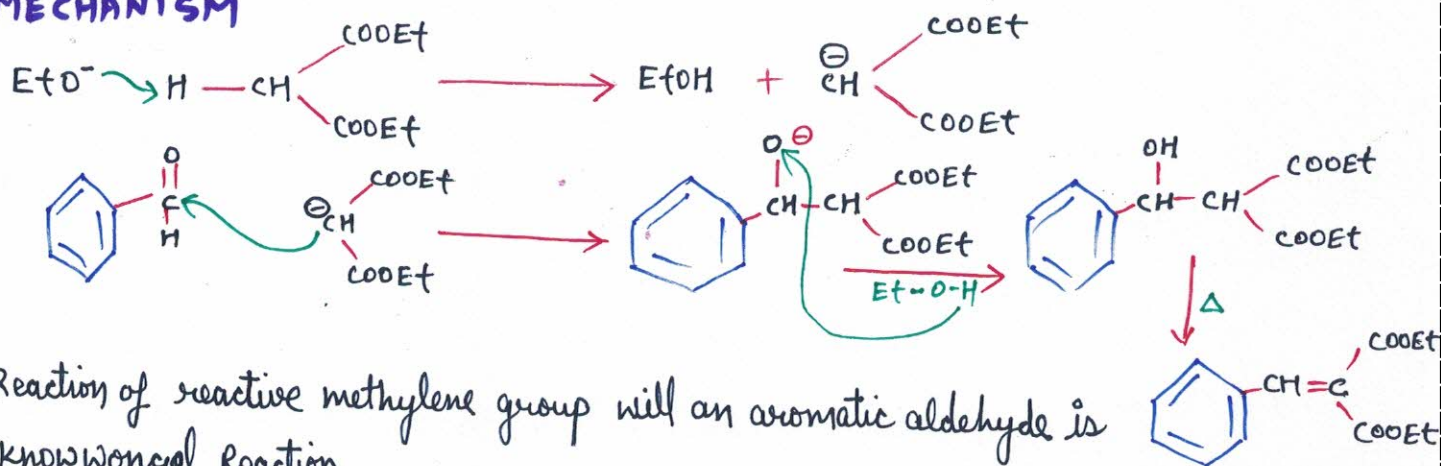 MECHANISM
EtO⁻ H — CH COOEt COOEt → EtOH + ⊖ CH COOEt COOEt
O C H ⊖ CH COOEt COOEt → O ⊖ CH — CH COOEt COOEt Et-O-H OH CH — CH COOEt COOEt
Δ
CH=C COOEt COOEt
Reaction of reactive methylene group will an aromatic aldehyde is
Reaction